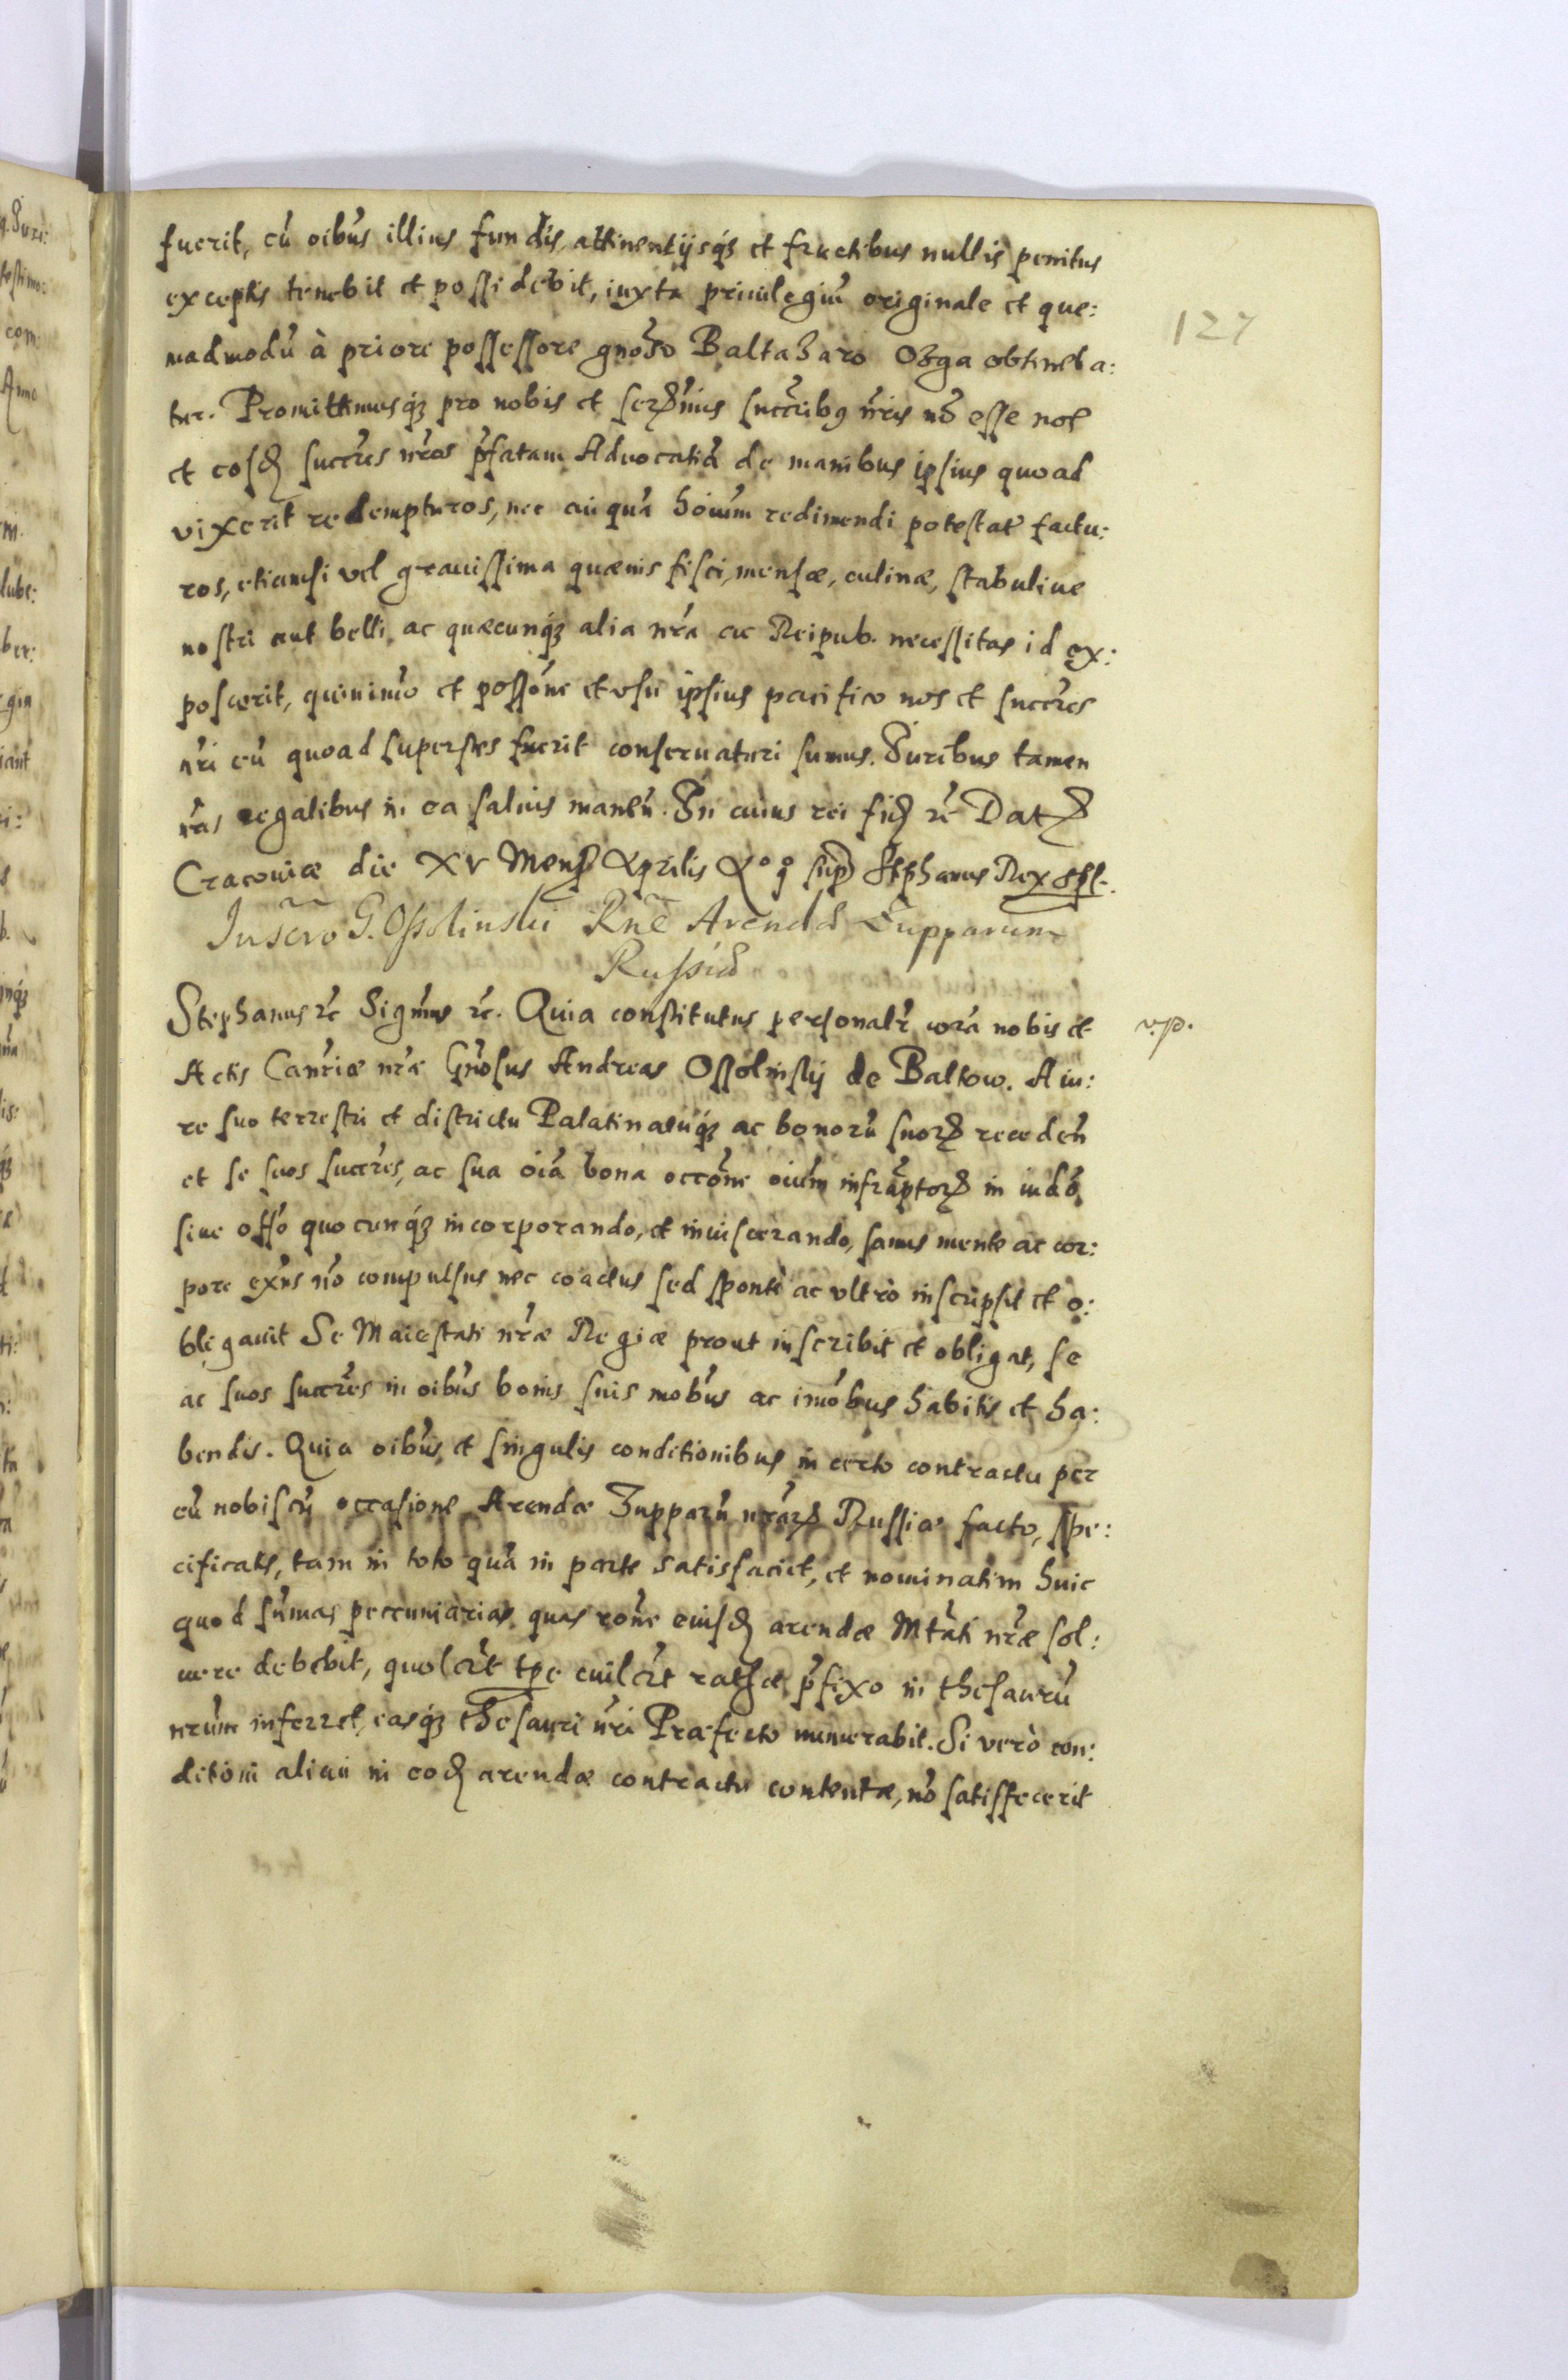 127
fuerit, cũ oib́us illius fundis, attinentijsq́ȝ et fructibus nullis penitus
exceptis tenebit et possidebit, iuxta priuilegiũ originale et que:
madmodũ à priore possessore gnoso Baltazaro Ozga obtineba:
tur. Promittimusq́ȝ pro nobis et serx̃mis succ̃ribꝯ nr̃is nõ esse nos
et eosd succ̃res nr̃os p̃fatam Aduocatiã de manibus ipsius quoad
vixerit redempturos, nec cuiquã hoĩum redimendi potestatẽ factu:
ros, etiamsi vel grauissima quæuis fisci, mensæ, culinæ, stabuliue
nostri aut belli, ac quæcunq́ȝ alia nr̃a ac Reipub. necessitas id ex:
poscerit, quinimo et possõne et vsu ipsius pacifico nos et succ̃res
nr̃i eũ quoad superstes fuerit conseruaturi sumus. Juribus tamen
nr̃is regalibus in ea saluis maneñ. In cuius rei fid rc̃ Dat
Cracouiæ die XV Mens Aprilis Stephanus Rex
Inscro G. Ossolinski Rñe Arendæ Zupparum
Russiæ
Stephanus rc̃ Signũus rc̃. Quia constitutus personalr̃ corã nobis et
Actis Canr̃iæ nr̃æ Gñosus Andreas Ossolinskij de Baltow. A iu:
re suo terrestri et districtu Palatinatuq́ȝ ac bonorũ suor recedeñ
et se suos succ̃res, ac sua oĩa bona occõne oiũm infrapt̃or in iud̃o
siue off̃o quocunq́ȝ incorporando, et inuiscerando, sanus mente ac cor:
pore ex̃ns nõ compulsus nec coactus sed spontè ac vltrò inscripsit et o:
bligauit Se Maiestati nr̃æ Regiæ prout inscribit et obligat, se
ac suos succ̃res in oib́us bonis suis mob́us ac imõbus habitis et ha:
bendis. Quia oib́us et singulis conditionibus in certo contractu per
eũ nobiscũ occasione Arendæ Zupparũ nr̃ar Russiæ facto, spe:
cificatis, tam in toto quã in parte satisfaciet, et nominatim huic
quod sum̃as peccuniarias quas rõne eiusd arendæ Mt̃ati nr̃æ sol:
uere debebit, quolibt tp̃e cuilibt ratæ p̃fixo in thesaurũ
nr̃um inferret, easq́ȝ thesauri nr̃i Præfecto numerabit. Si verò con:
ditioni alicui in eod arendæ contractu contentæ, nõ satisfecerit